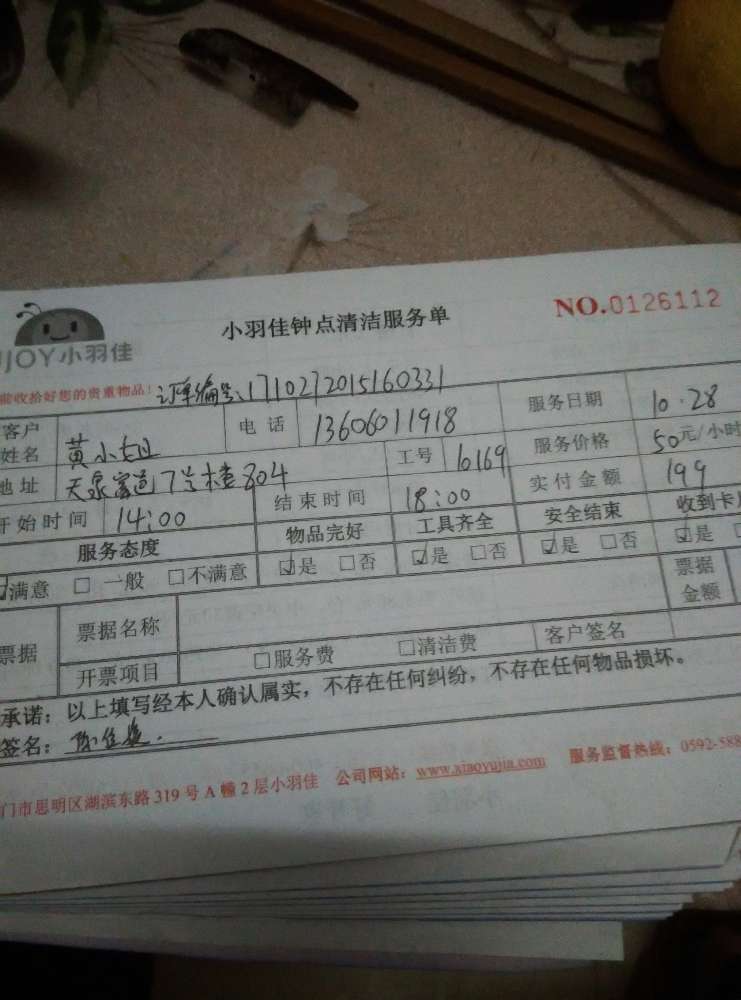 小羽佳钟点清洁服务单
NO.0126112
JOY小羽佳
收拾好您的贵重物品！订单编号、1710272015160331
客户姓名 黄小 电话 13606011918 服务日期 10.28
地址 天泉富道7号楼804 工号 10169 服务价格 50元/小时
开始时间 14:00 结束时间 18:00 实付金额 199
服务态度 物品完好 工具齐全 安全结束 收到卡
☑满意 □一般 □不满意 ☑是 □否 ☑是 □否 ☑是 □否 ☑是
票据 票据名称 票据金额
开票项目 □服务费 □清洁费 客户签名
承诺：以上填写经本人确认属实，不存在任何纠纷，不存在任何物品损坏。
签名：
门市思明区湖滨东路319号A幢2层小羽佳 公司网站：www.xiaoyujia.com 服务监督热线：0592-588